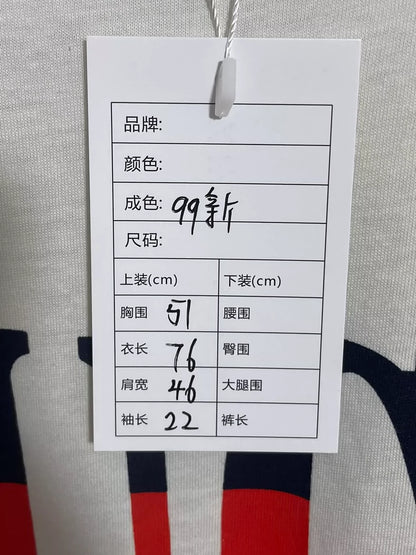 品牌:
颜色:
成色: 99新
尺码:
上装(cm) 下装(cm)
胸围 51 腰围
衣长 76 臀围
肩宽 46 大腿围
袖长 22 裤长